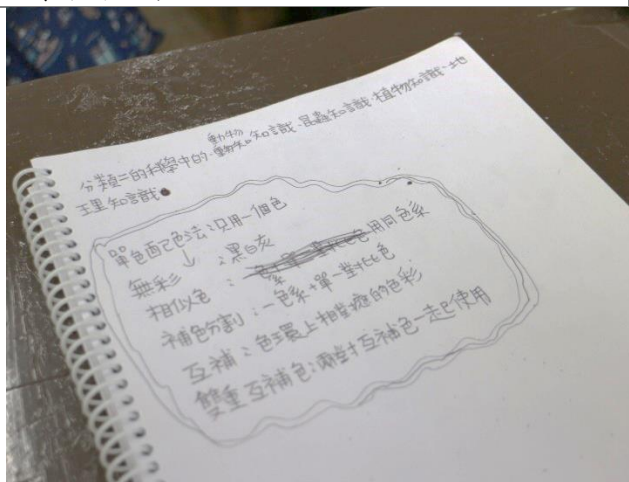 動物
分類二的科學中的、知識、昆蟲知識、植物知識、地
理知識
單色配色法:只用一個色
↓
無彩:黑白灰
相似色:用同色系
補色分割:一色系+單一對比色
互補:色環上相對應的色彩
雙重互補色:兩對互補色一起使用